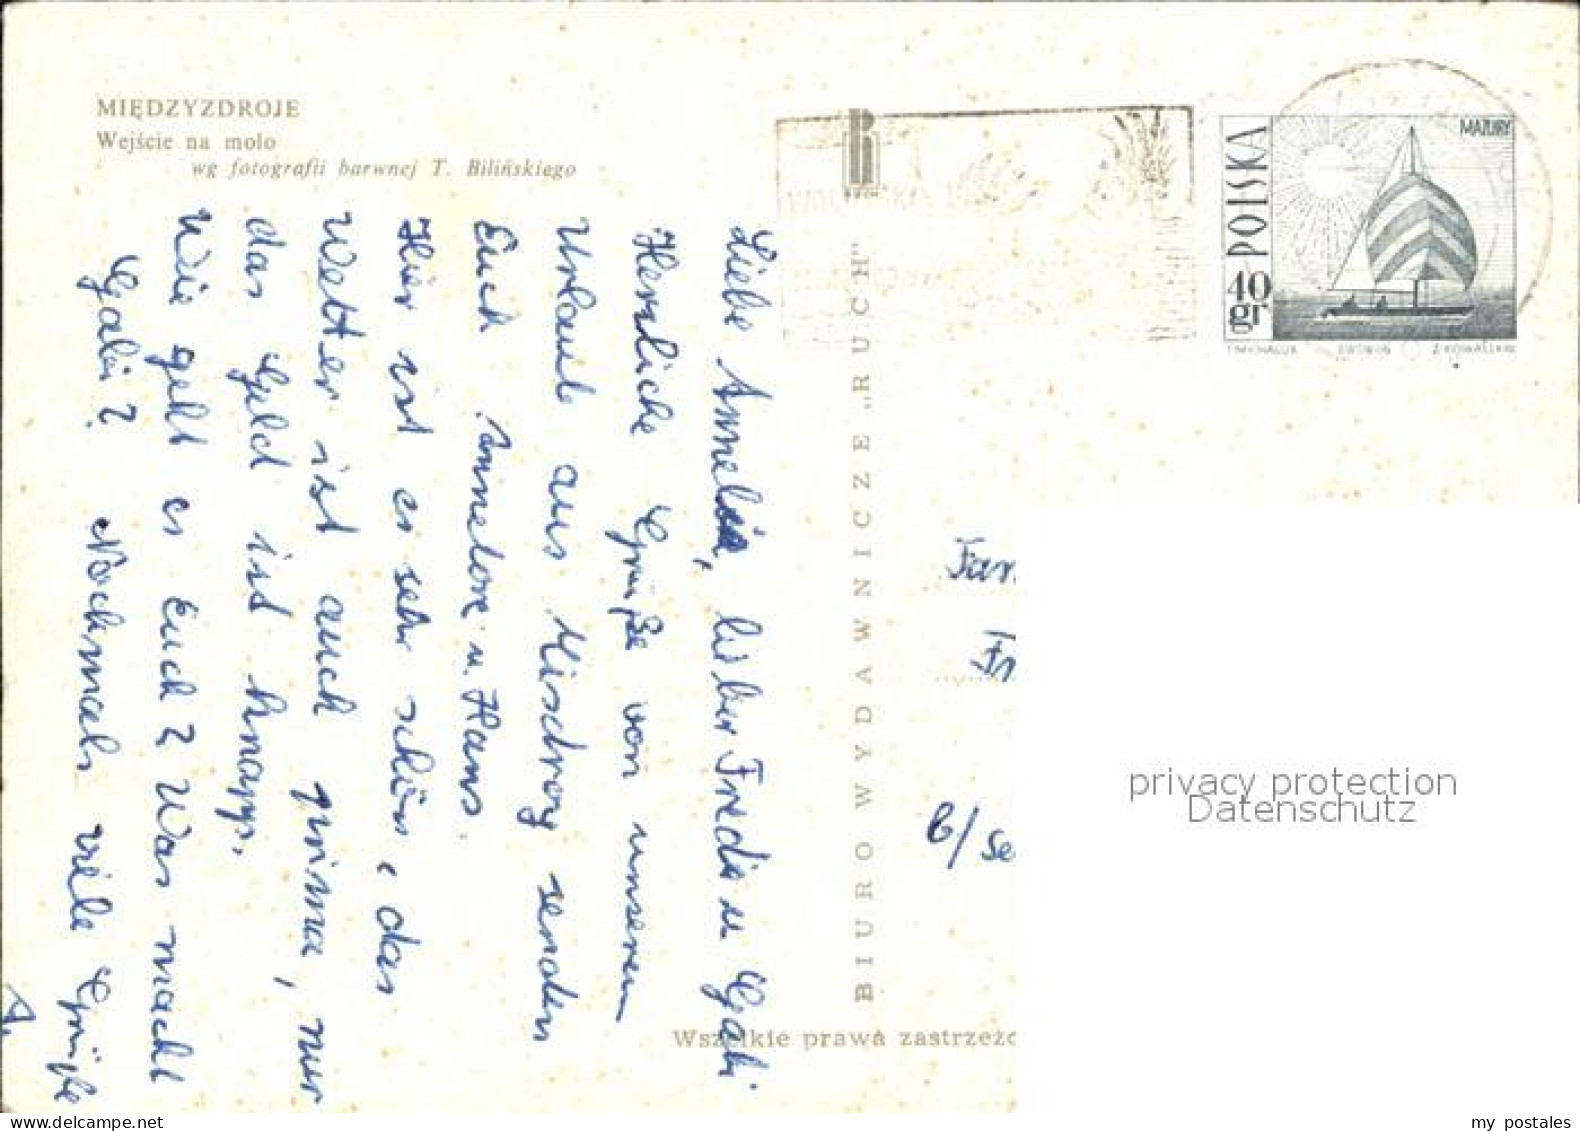 MIĘDZYZDROJE
Wejście na molo
wg fotografii barwnej T. Bilińskiego
POLSKA
40
gr
MAZURY
T. MICHALUK
Z. KOWALSKI
BIURO WYDAWNICZE „RUCH"
Liebe Annelie, lieber Fredi u Gabi
Herzliche Grüße von unserem
Urlaub aus Misdroy senden
Euch Annelore u. Hans.
Hier ist es sehr schön, das
Wetter ist auch prima, nur
das Geld ist knapp.
Wie geht es Euch? Was macht
Gabi? Nochmals viele Grüße
A.
Fam
Fr
B/Se
Wszelkie prawa zastrzeżo
privacy protection
Datenschutz
my postales